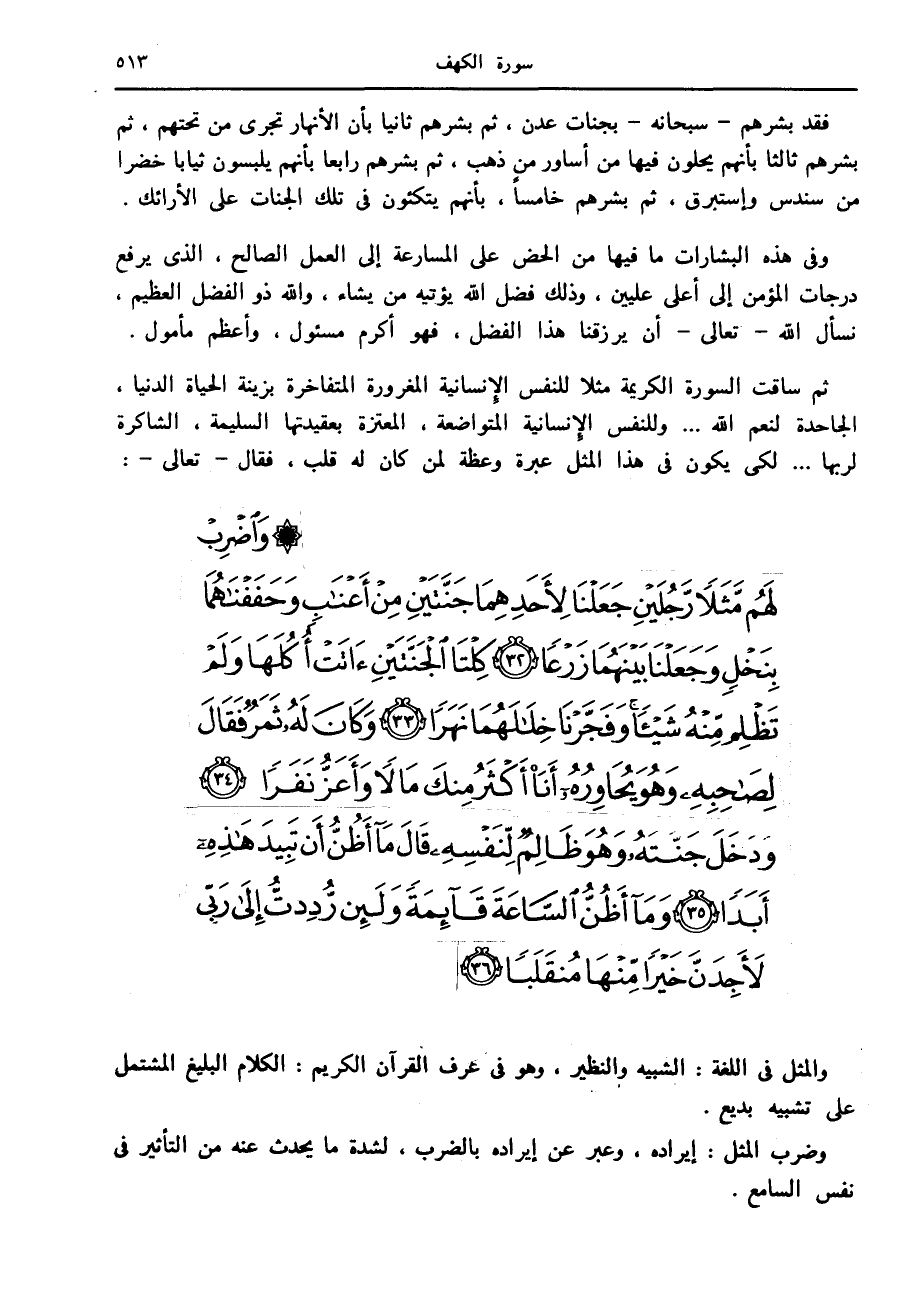 سورة الكهف ٥١٣
فقد بشرهم – سبحانه – بجنات عدن ، ثم بشرهم ثانيا بأن الأنهار تجرى من تحتهم ، ثم
بشرهم ثالثا بأنهم يحلون فيها من أساور من ذهب ، ثم بشرهم رابعا بأنهم يلبسون ثيابا خضرا
من سندس وإستبرق ، ثم بشرهم خامساً ، بأنهم يتكئون فى تلك الجنات على الأرائك .
وفى هذه البشارات ما فيها من الحض على المسارعة إلى العمل الصالح ، الذى يرفع
درجات المؤمن إلى أعلى عليين ، وذلك فضل الله يؤتيه من يشاء ، والله ذو الفضل العظيم ،
نسأل الله – تعالى – أن يرزقنا هذا الفضل ، فهو أكرم مسئول ، وأعظم مأمول .
ثم ساقت السورة الكريمة مثلا للنفس الإنسانية المغرورة المتفاخرة بزينة الحياة الدنيا ،
الجاحدة لنعم الله ... وللنفس الإنسانية المتواضعة ، المعتزة بعقيدتها السليمة ، الشاكرة
لربها ... لكى يكون فى هذا المثل عبرة وعظة لمن كان له قلب ، فقال – تعالى – :
۞ وَٱضۡرِبۡ
لَهُم مَّثَلٗا رَّجُلَيۡنِ جَعَلۡنَا لِأَحَدِهِمَا جَنَّتَيۡنِ مِنۡ أَعۡنَٰبٖ وَحَفَفۡنَٰهُمَا
بِنَخۡلٖ وَجَعَلۡنَا بَيۡنَهُمَا زَرۡعٗا ٣٢ كِلۡتَا ٱلۡجَنَّتَيۡنِ ءَاتَتۡ أُكُلَهَا وَلَمۡ
تَظۡلِم مِّنۡهُ شَيۡـٔٗاۚ وَفَجَّرۡنَا خِلَٰلَهُمَا نَهَرٗا ٣٣ وَكَانَ لَهُۥ ثَمَرٞ فَقَالَ
لِصَٰحِبِهِۦ وَهُوَ يُحَاوِرُهُۥٓ أَنَا۠ أَكۡثَرُ مِنكَ مَالٗا وَأَعَزُّ نَفَرٗا ٣٤
وَدَخَلَ جَنَّتَهُۥ وَهُوَ ظَالِمٞ لِّنَفۡسِهِۦ قَالَ مَآ أَظُنُّ أَن تَبِيدَ هَٰذِهِۦٓ
أَبَدٗا ٣٥ وَمَآ أَظُنُّ ٱلسَّاعَةَ قَآئِمَةٗ وَلَئِن رُّدِدتُّ إِلَىٰ رَبِّي
لَأَجِدَنَّ خَيۡرٗا مِّنۡهَا مُنقَلَبٗا ٣٦
والمثل فى اللغة : الشبيه والنظير ، وهو فى عرف القرآن الكريم : الكلام البليغ المشتمل
على تشبيه بديع .
وضرب المثل : إيراده ، وعبر عن إيراده بالضرب ، لشدة ما يحدث عنه من التأثير فى
نفس السامع .